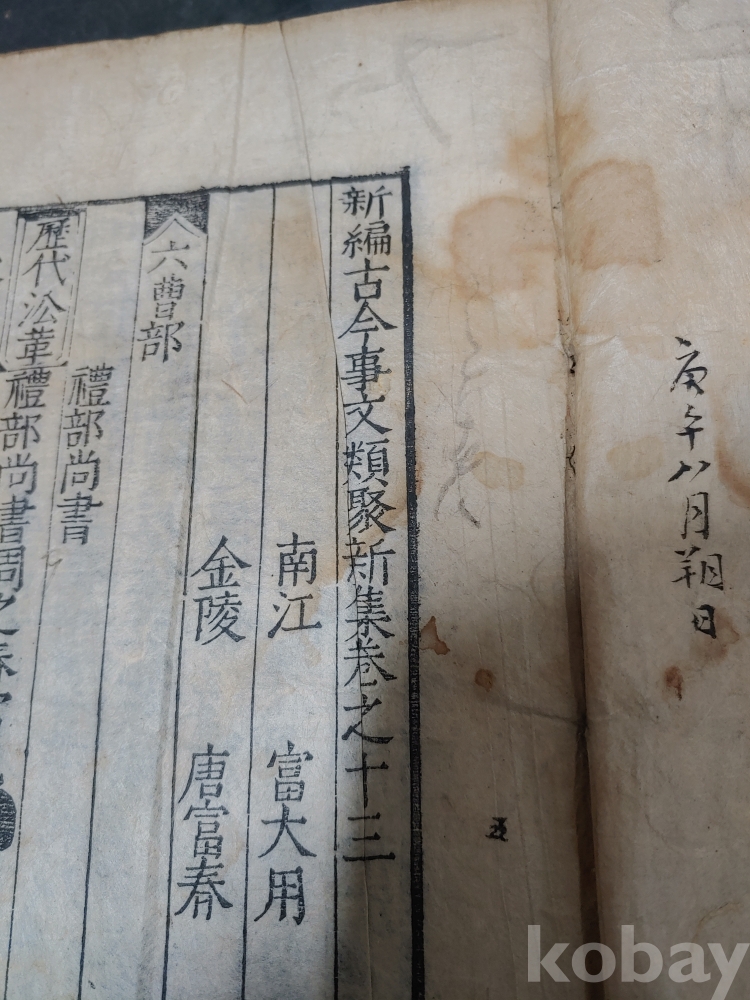 庚午八月朔日
五
新編古今事文類聚新集卷之十三
南江 富大用
金陵 唐富春
六曹部
禮部尚書
歷代沿革 禮部尚書周之春官
kobay